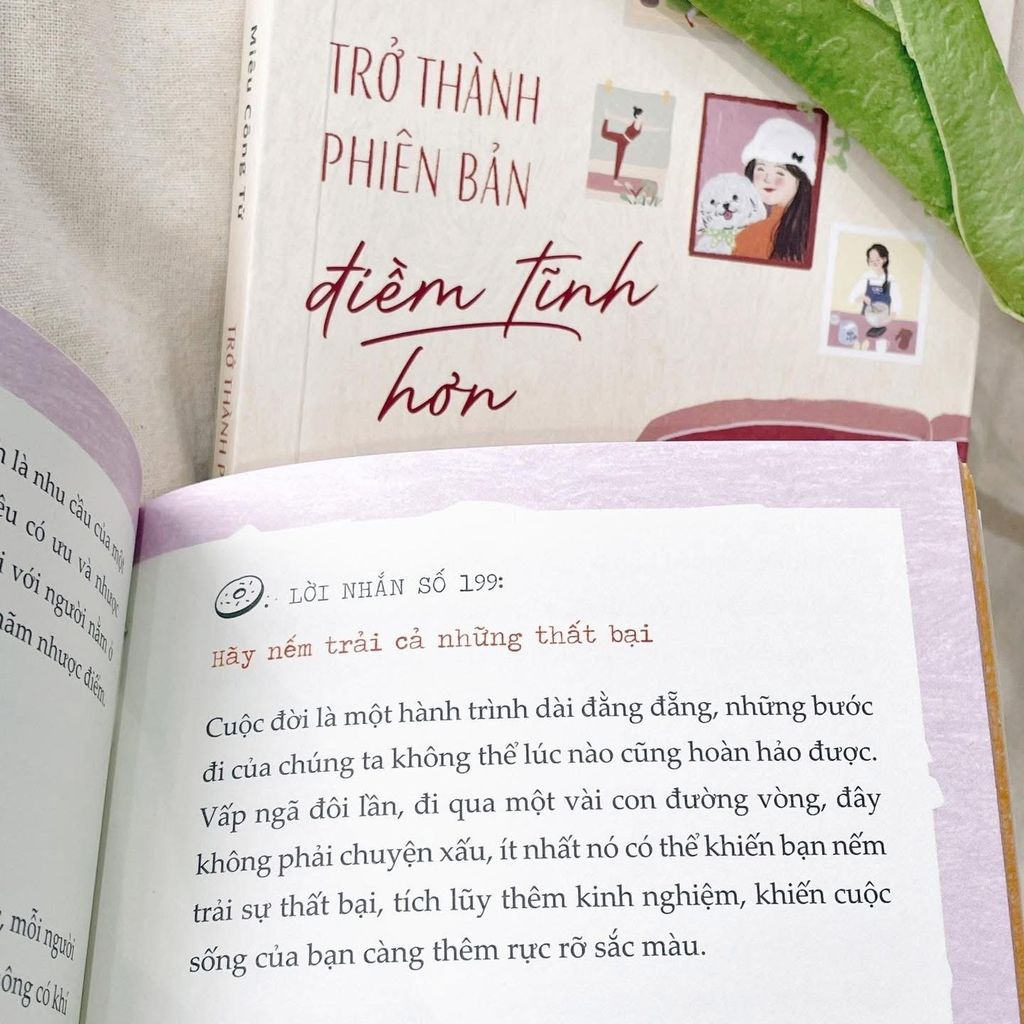 Miêu Công Tử
TRỞ THÀNH P
TRỞ THÀNH
PHIÊN BẢN
điềm tĩnh
hơn
là nhu cầu của một
có ưu và nhược
với người nằm ở
nhược điểm.
mỗi người
có khí
LỜI NHẮN SỐ 199:
Hãy nếm trải cả những thất bại
Cuộc đời là một hành trình dài đằng đẵng, những bước
đi của chúng ta không thể lúc nào cũng hoàn hảo được.
Vấp ngã đôi lần, đi qua một vài con đường vòng, đây
không phải chuyện xấu, ít nhất nó có thể khiến bạn nếm
trải sự thất bại, tích lũy thêm kinh nghiệm, khiến cuộc
sống của bạn càng thêm rực rỡ sắc màu.